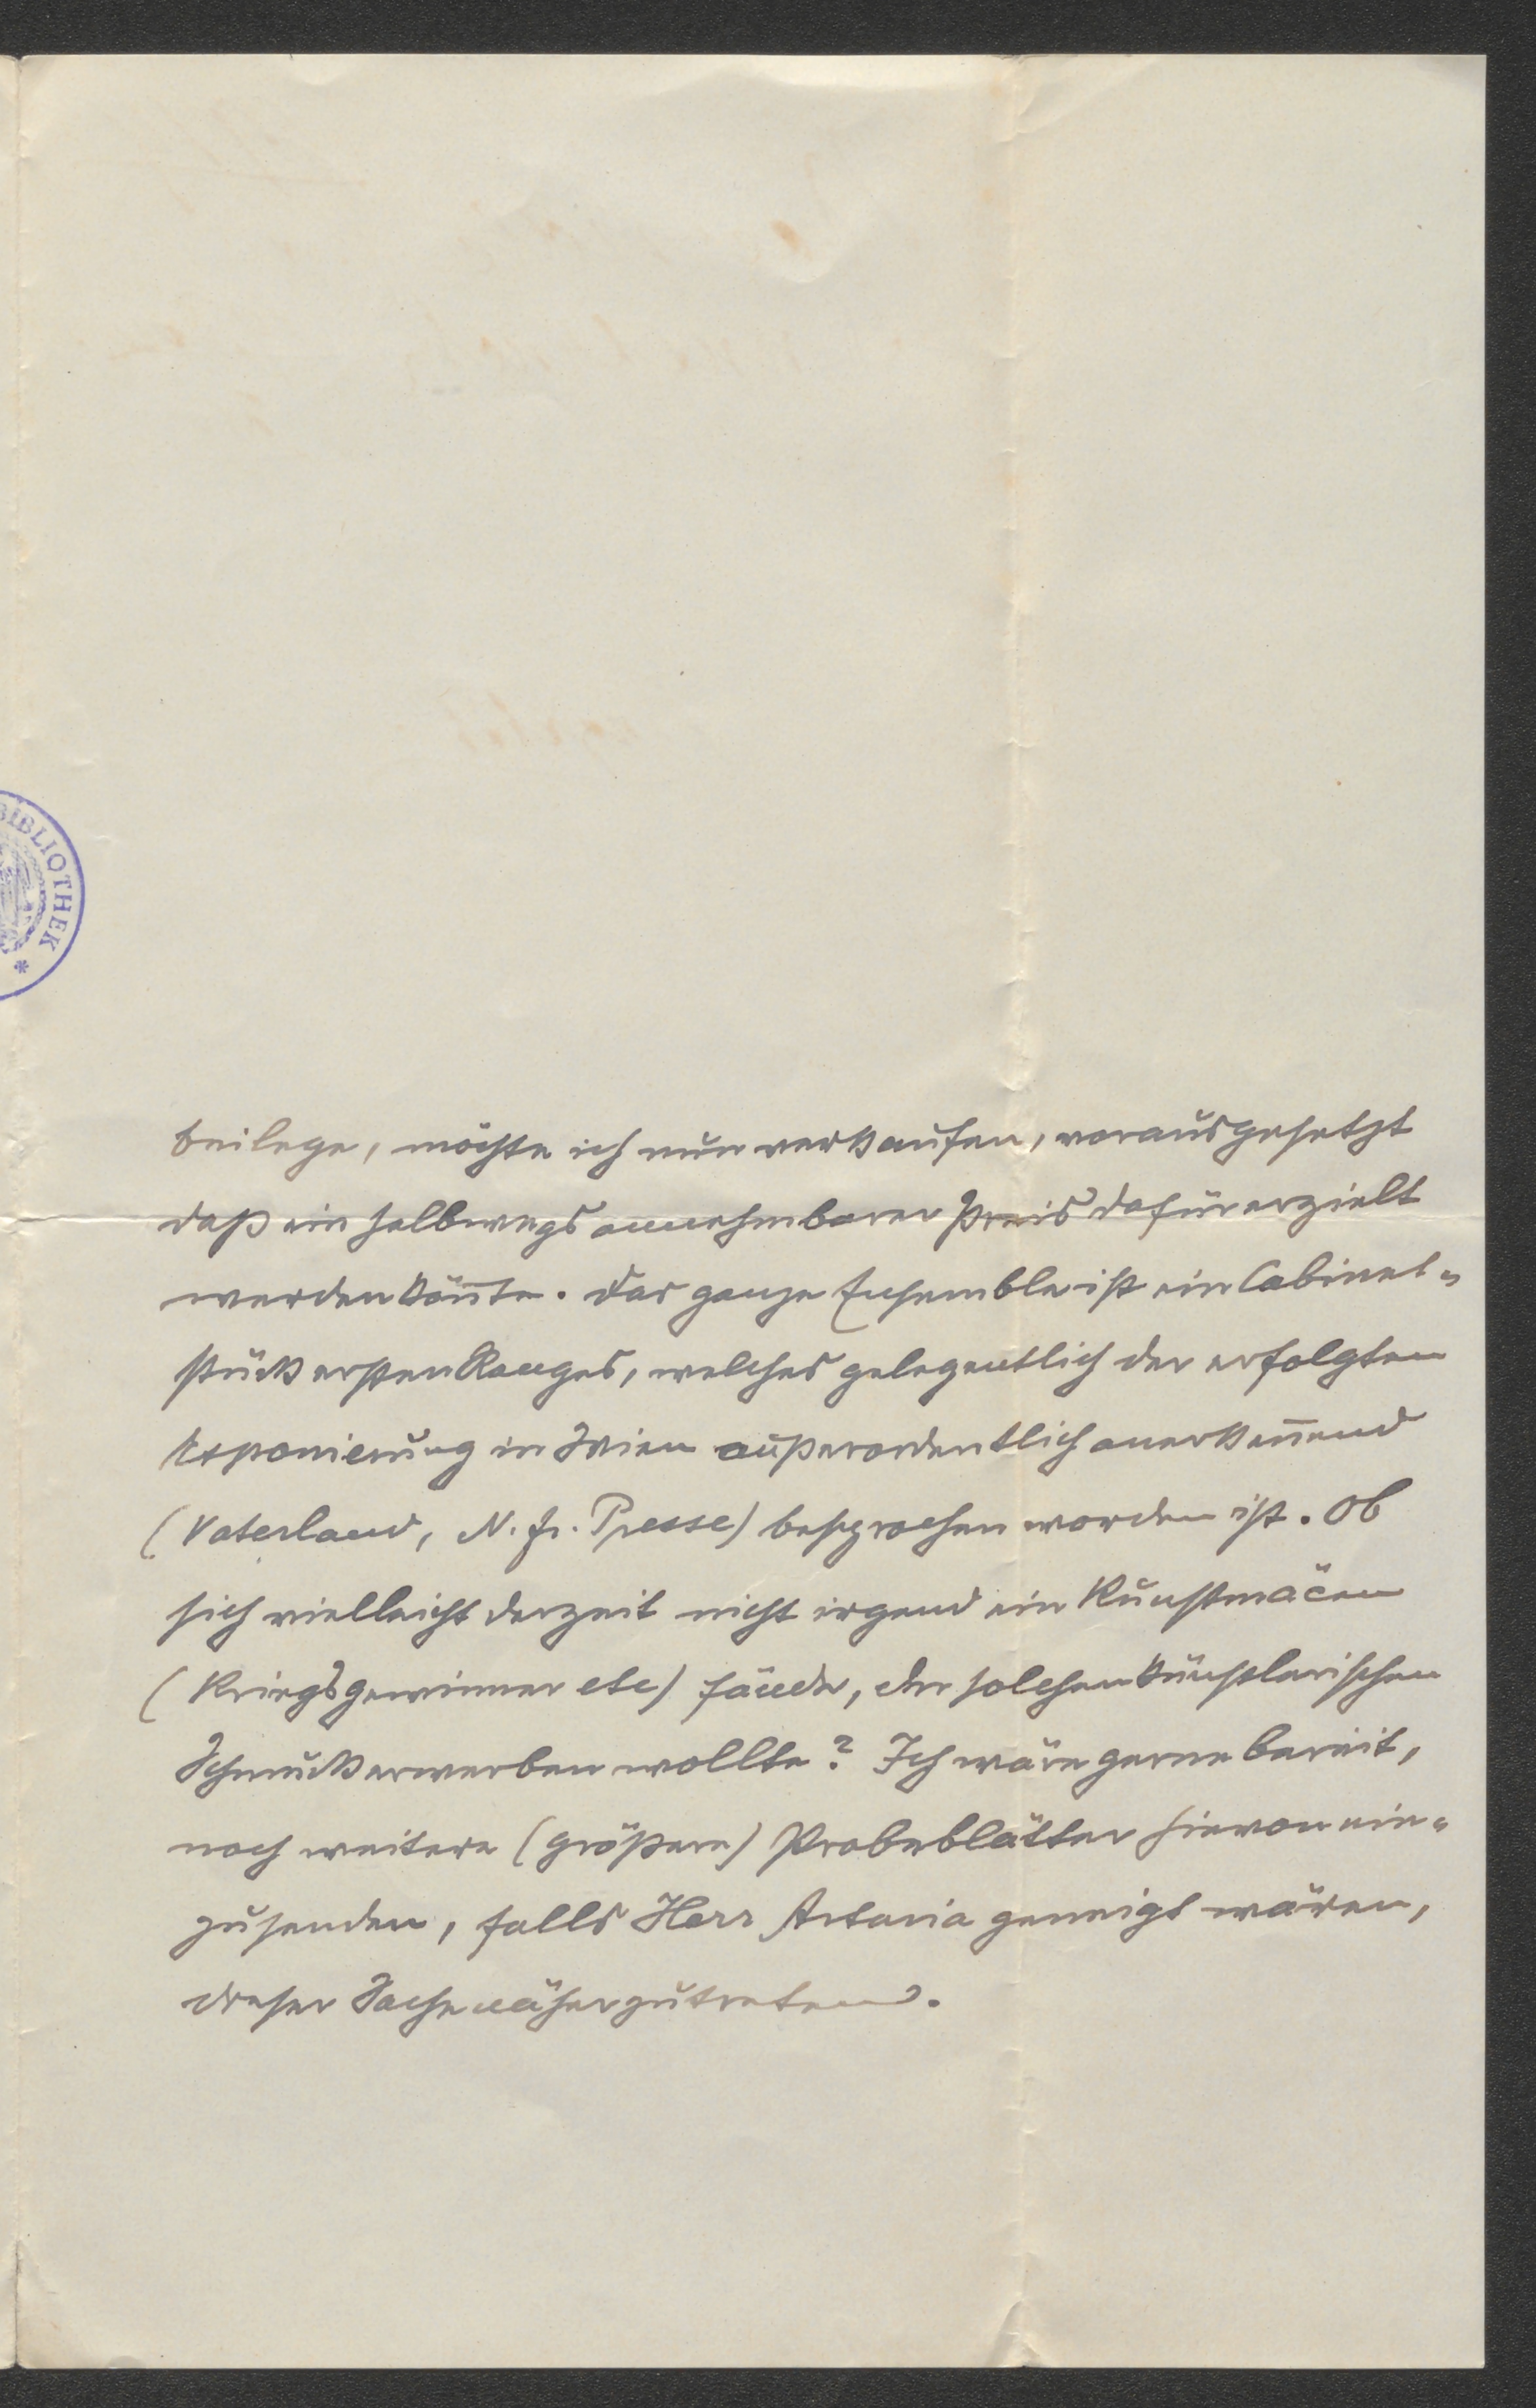 BIBLIOTHEK *
beilege, möchte ich nun verkaufen, vorausgesetzt
daß ein halbwegs annehmbarer Preis dafür erzielt
werden kön̅te. Das ganze Ensemble ist ein Cabinet-
stück ersten Ranges, welches gelegentlich der erfolgten
Exponierung in Wien außerordentlich anerken̅end
(Vaterland, N. fr. Presse) besprochen worden ist. Ob
sich vielleicht derzeit nicht irgend ein Kunstmäcen
(Kriegsgewinner etc) fände, der solchen künstlerischen
Schmuck erwerben wollte? Ich wäre gerne bereit,
noch weitere (größere) Probeblätter hievon ein-
zusenden, falls Herr Artaria geneigt wären,
dieser Sache näherzutreten.